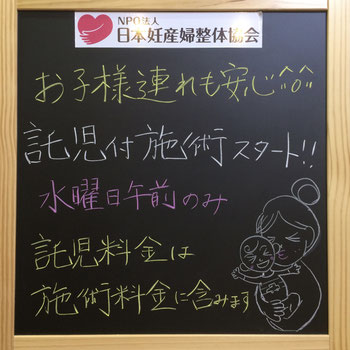 NPO法人
日本妊産婦整体協会
お子様連れも安心^o^
託児付施術スタート!!
水曜日午前のみ
託児料金は
施術料金に含みます